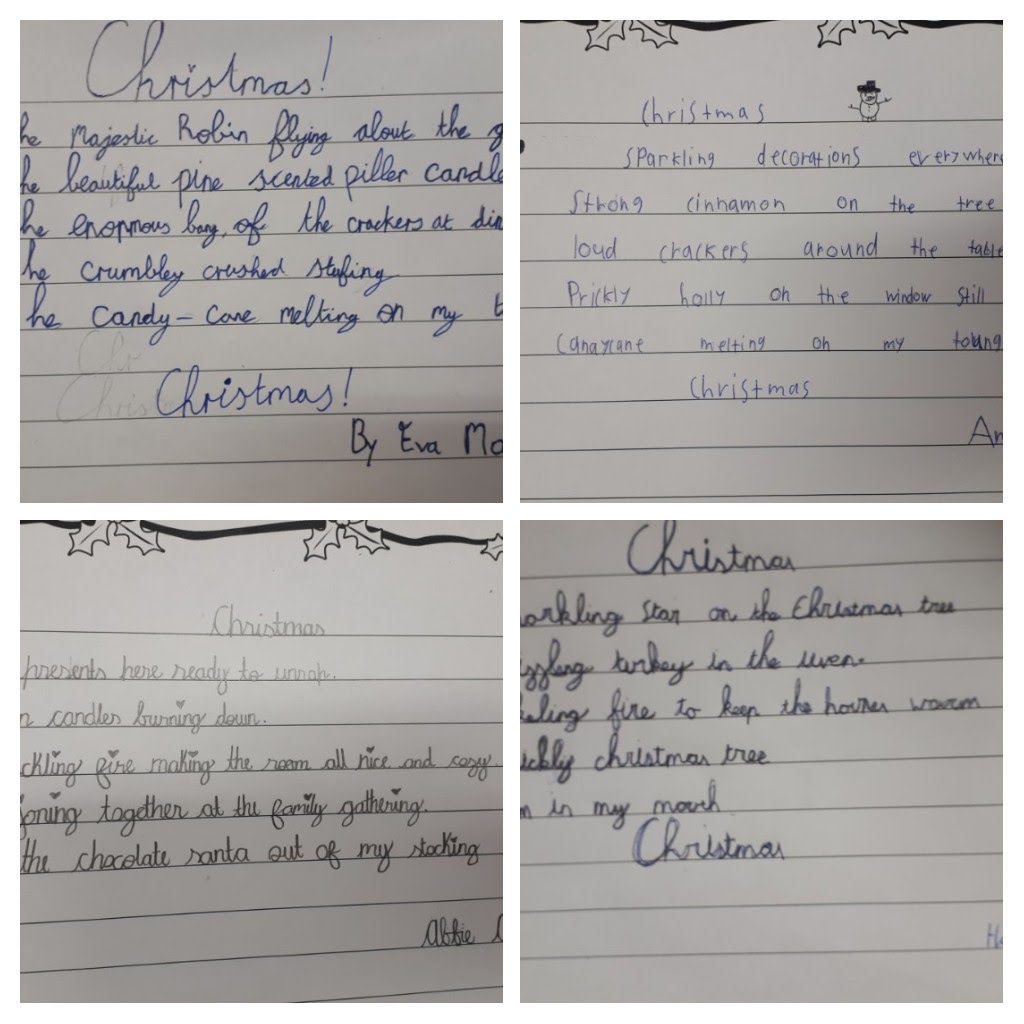 Christmas!
he Majestic Robin flying about the g
he beautiful pine scented piller candle
he enormous bang, of the crackers at din
he crumbley crushed stufing
he candy-cane melting on my t
Christmas!
By Eva Mo
Christmas
Sparkling decorations everywhere
Strong cinnamon on the tree
loud crackers around the table
Prickly holly on the window still
Canaycane melting on my toung
Christmas
An
Christmas
presents here ready to unrap.
candles burning down.
ckling fire making the room all nice and cosy.
joning together at the family gathering.
the chocolate santa out of my stocking
Abbie
Christmas
arkling Star on the Christmas tree
zzleng turkey in the uven.
eling fire to keep the houses warm
ickly christmas tree
in my mouth
Christmas
H